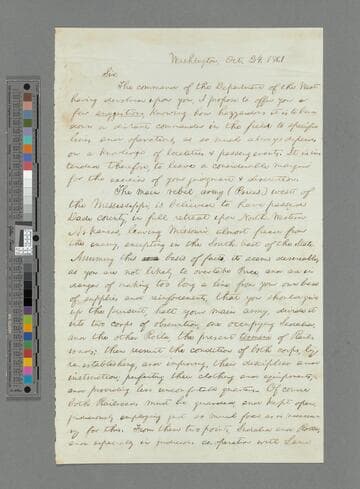 Washington, Oct. 24, 1861
Sir
The command of the Department of the West
having devolved upon you, I propose to offer you a
few suggestions, knowing how hazzardous it is to bind
down a distant commander in the field to specific
lines and operations, as so much always depends
on a knowledge of localities & passing events. It is in-
tended, therefore, to leave a considerable margin
for the exercise of your judgment & discretion.
The main rebel army (Price's) west of
the Mississippi, is believed to have passed
Dade county, in full retreat upon North Western
Arkansas, leaving Missouri almost freed from
the enemy, excepting in the South East of the State.
Assuming this basis of fact, it seems desireable,
as you are not likely to overtake Price, and are in
danger of making too long a line from your own base
of supplies and reinforcements, that you should give
up the pursuit, halt your main army, divide it
into two corps of observation, one occupying Sedalia,
and the other Rolla, the present termini of Rail-
roads; then recruit the condition of both corps, by
re-establishing, and improving, their discipline and
instruction; perfecting their clothing and equipments,
and providing less uncomfortable quarters. Of course
both Railroads must be guarded, and kept open,
judiciously employing just so much force as is necessary
for this. From these two points, Sedalia and Rolla,
and especially in judicious co-operation with Lane